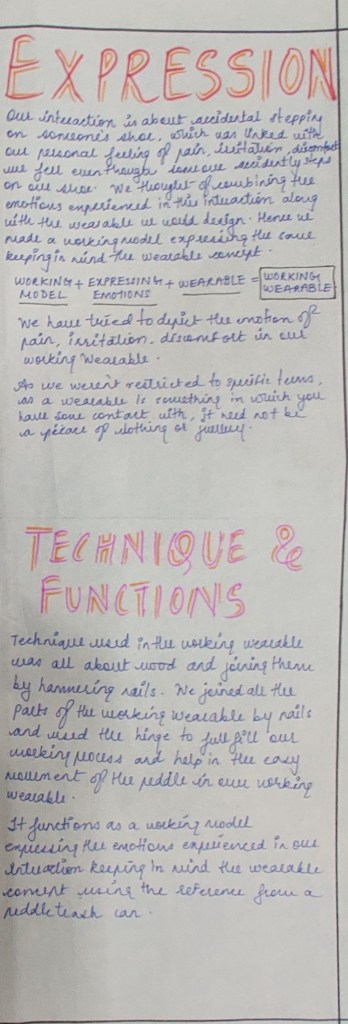 EXPRESSION
Our interaction is about accidental stepping
on someone's shoe, which was linked with
our personal feeling of pain, irritation, discomfort
we feel even though someone accidently steps
on our shoe. We thought of combining the
emotions experienced in this interaction along
with the wearable we would design. Hence we
made a working model expressing the same
keeping in mind the wearable concept.
WORKING + EXPRESSING + WEARABLE = WORKING
MODEL EMOTIONS WEARABLE
We have tried to depict the emotion of
pain, irritation, discomfort in our
working wearable.
As we weren't restricted to specific terms,
as a wearable is something in which you
have some contact with, it need not be
a piece of clothing or
TECHNIQUE &
FUNCTIONS
Technique used in the working wearable
was all about wood and joining them
by hammering nails. We joined all the
parts of the working wearable by nails
and used the hinge to full fill our
working process and help in the easy
movement of the peddle in our working
wearable.
It functions as a working model
expressing the emotions experienced in our
interaction keeping in mind the wearable
concept using the reference from a
peddle trash can.